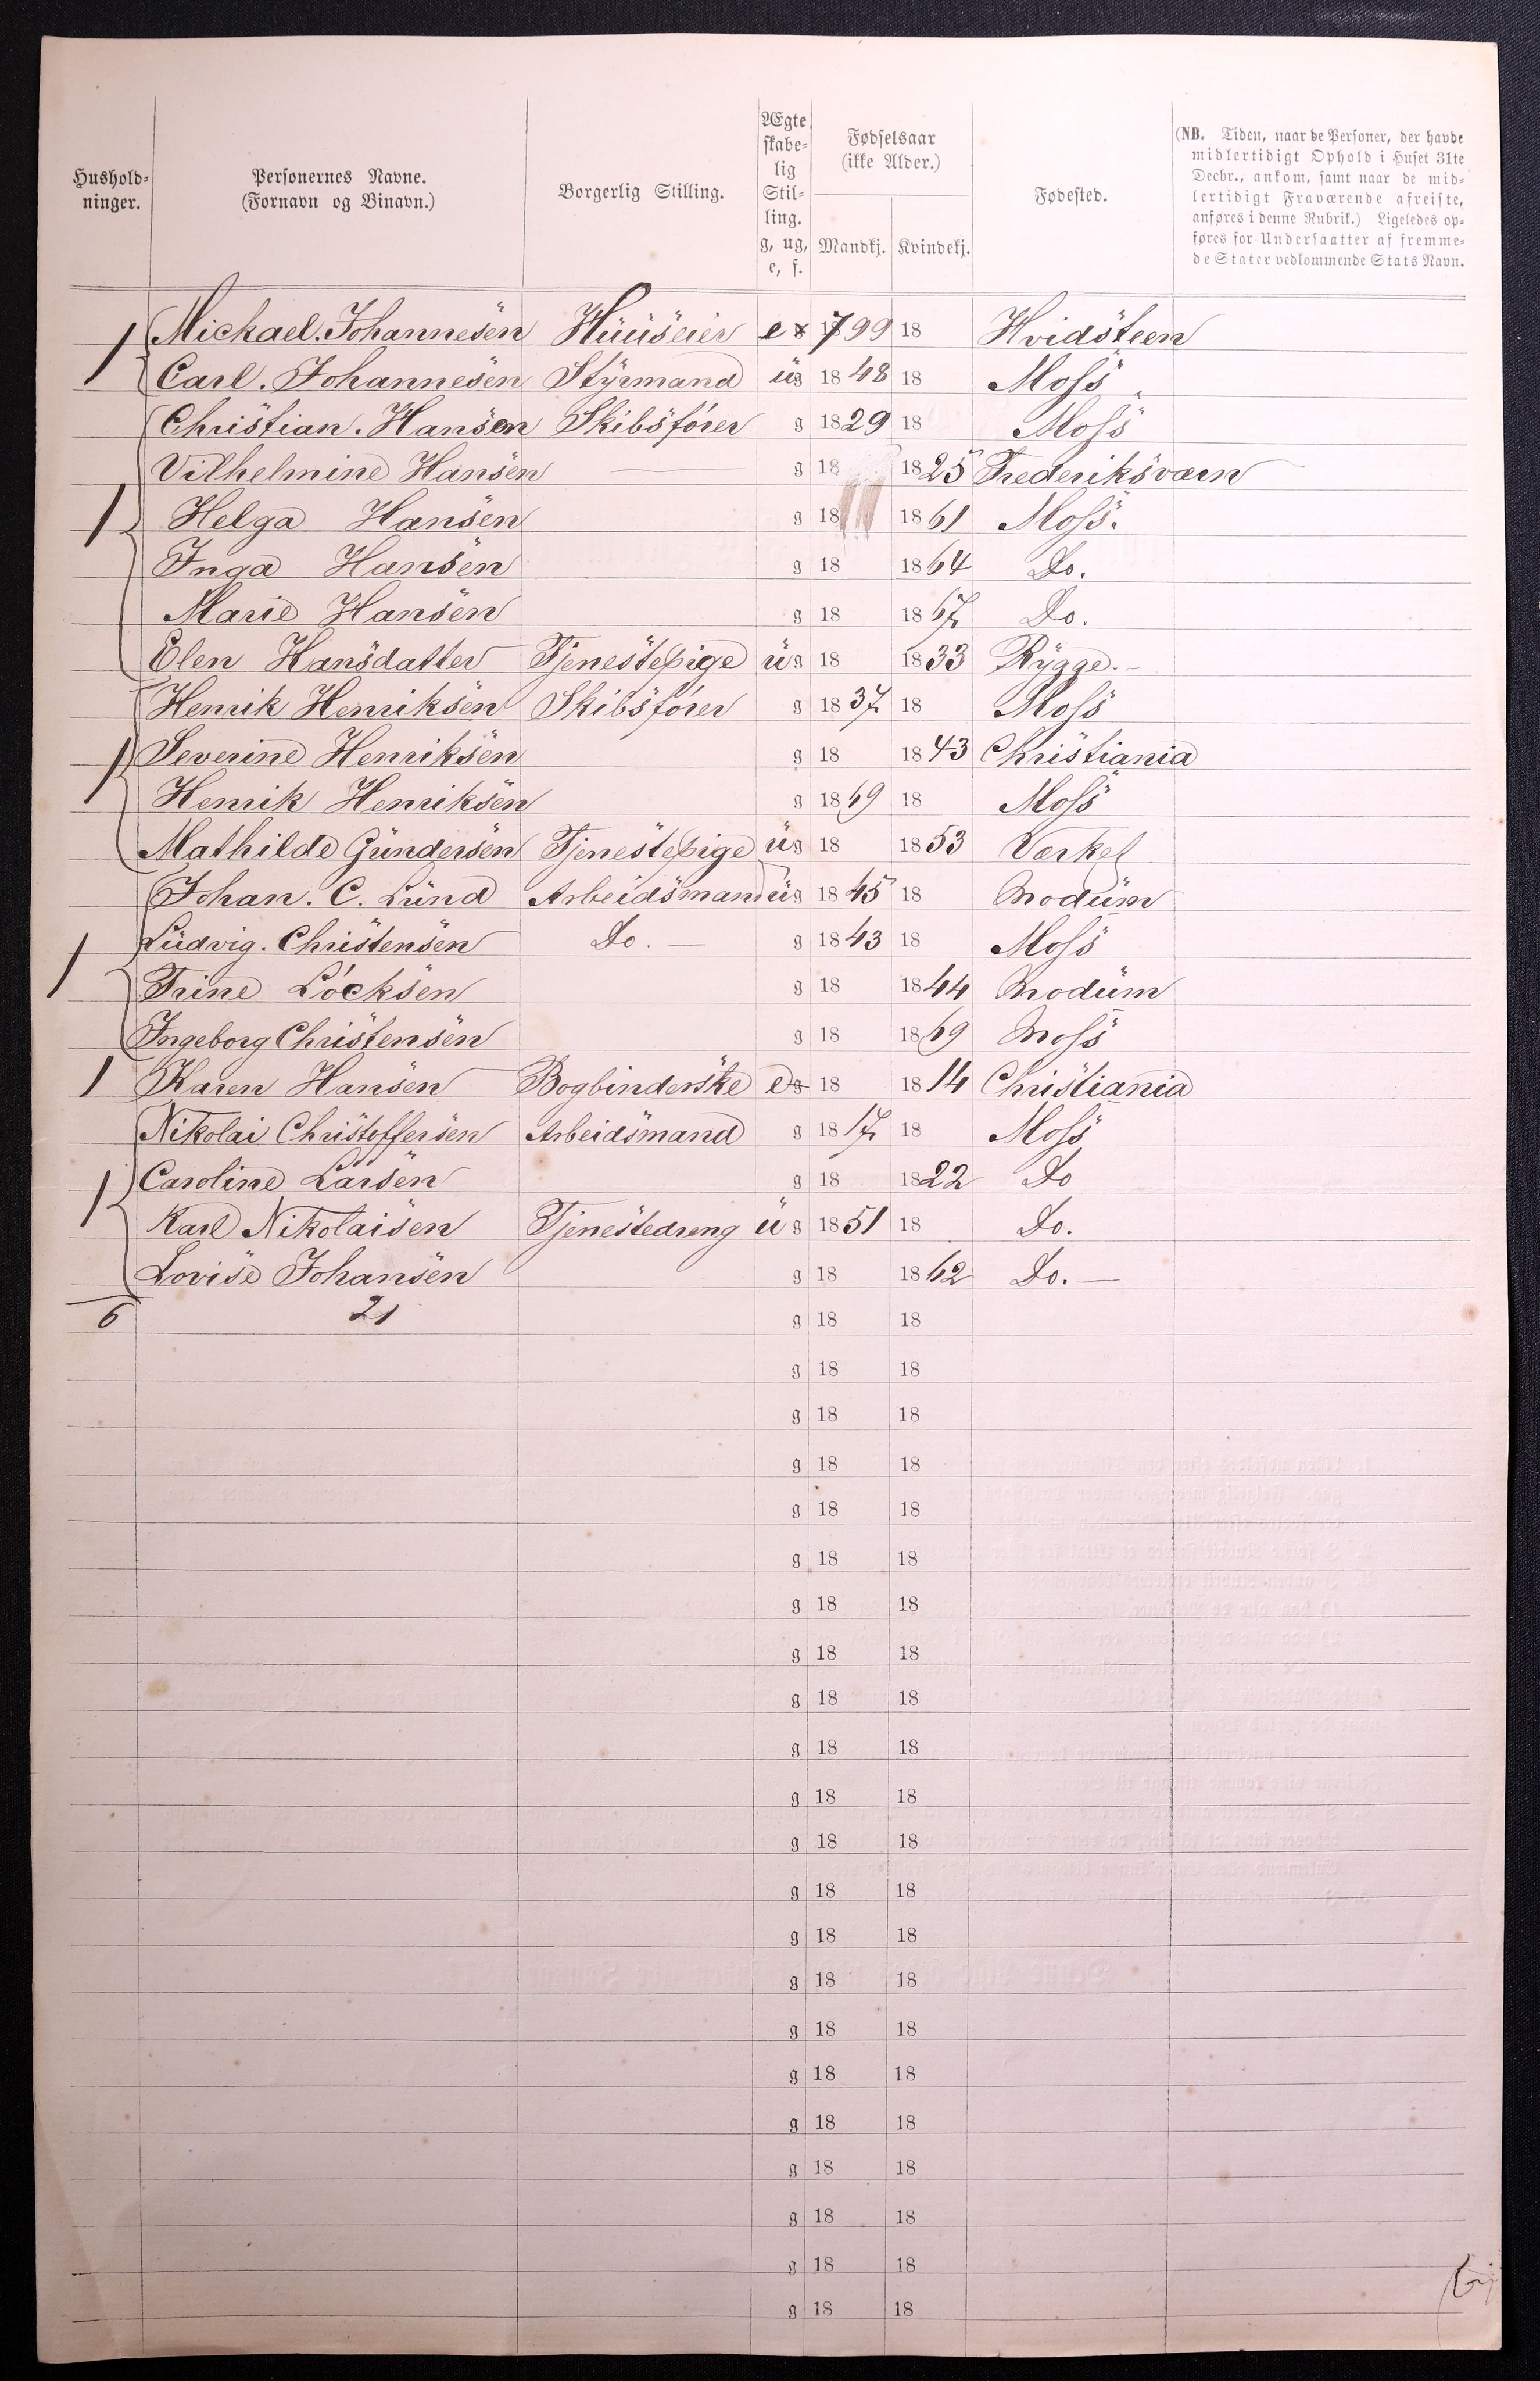 Hushold-
ninger.
Personernes Navne.
(Fornavn og Binavn.)
Borgerlig Stilling.
Ægte
skabe-
lig
Stil-
ling.
g, ug,
e, f.
Fødselsaar
(ikke Alder.)
Mandkj. Kvindekj.
Fødested.
(NB. Tiden, naar de Personer, der havde
midlertidigt Ophold i Huset 31te
Decbr., ankom, samt naar de mid-
lertidigt Fraværende afreiste,
anføres i denne Rubrik.) Ligeledes op-
føres for Undersaatter af fremme-
de Stater vedkommende Stats Navn.
1 Mickael. Johannesen Huuseier e 1799 18 Hvidsteen
Carl. Johannesen Styrmand ug 1848 18 Moss
Christian. Hansen Skibsfører g 1829 18 Moss
Vilhelmine Hansen — g 18 1825 Frederiksværn
1 Helga Hansen g 18 1861 Moss.
Inga Hansen g 18 1864 Do.
Marie Hansen g 18 1867 Do.
Elen Hansdatter Tjenestepige ug 18 1833 Rygge. -
Henrik Henriksen Skibsfører g 1837 18 Moss
1 Severine Henriksen g 18 1843 Christiania
Henrik Henriksen g 1869 18 Moss
Mathilde Gundersen Tjenestepige ug 18 1853 Værket
Johan. C. Lund Arbeidsmand ug 1845 18 Modum
1 Ludvig. Christensen Do. — g 1843 18 Moss
Trine Löcksen g 18 1844 Modum
Ingeborg Christensen g 18 1869 Moss
1 Karen Hansen Bogbinderske e g 18 1814 Christiania
Nikolai Christoffersen Arbeidsmand g 1817 18 Moss
1 Caroline Larsen g 18 1822 Do
Karl Nikolaisen Tjenestedreng ug 1851 18 Do.
Lovise Johansen g 18 1862 Do. —
6 21 g 18 18
g 18 18
g 18 18
g 18 18
g 18 18
g 18 18
g 18 18
g 18 18
g 18 18
g 18 18
g 18 18
g 18 18
g 18 18
g 18 18
g 18 18
g 18 18
g 18 18
g 18 18
g 18 18
g 18 18
g 18 18
g 18 18